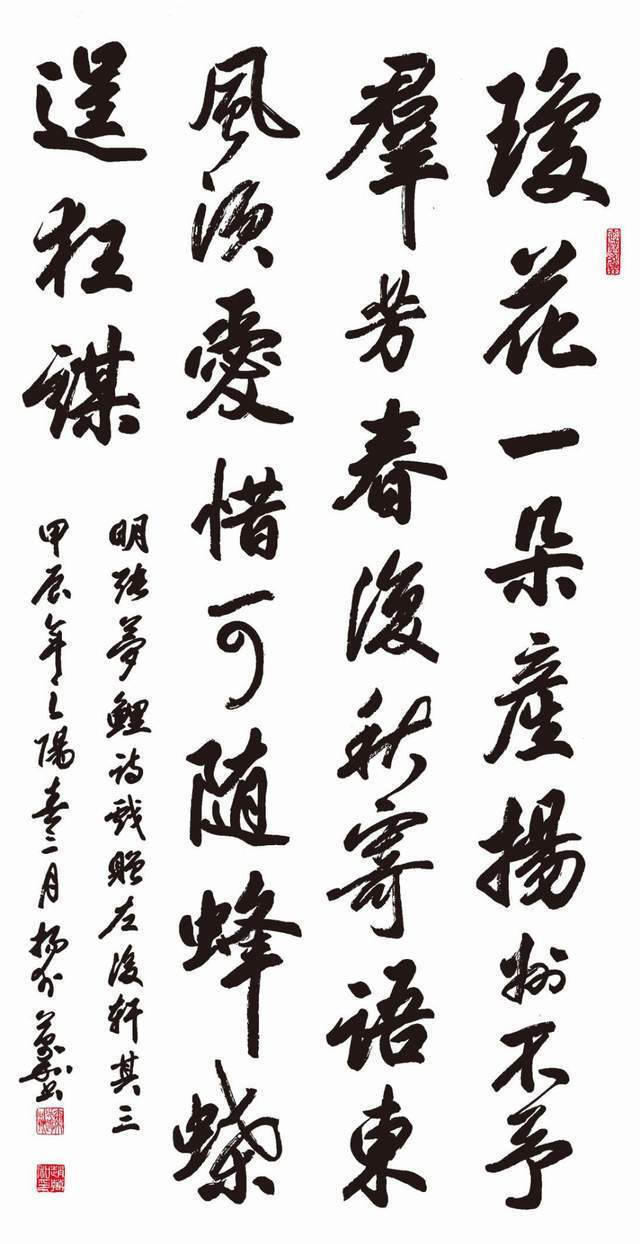 瓊花一朵產揚州不予
羣芳春復秋寄語東
風須愛惜可随蜂蝶
逞狂謀
明張夢鯉詩戲贈左後軒其三
甲辰年之陽春二月揚州書